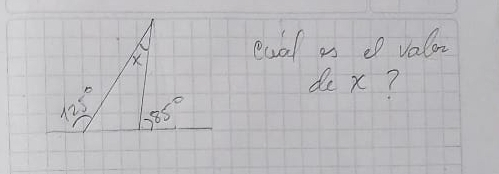 Cuál es el valor
de x ?
x
125°
85°